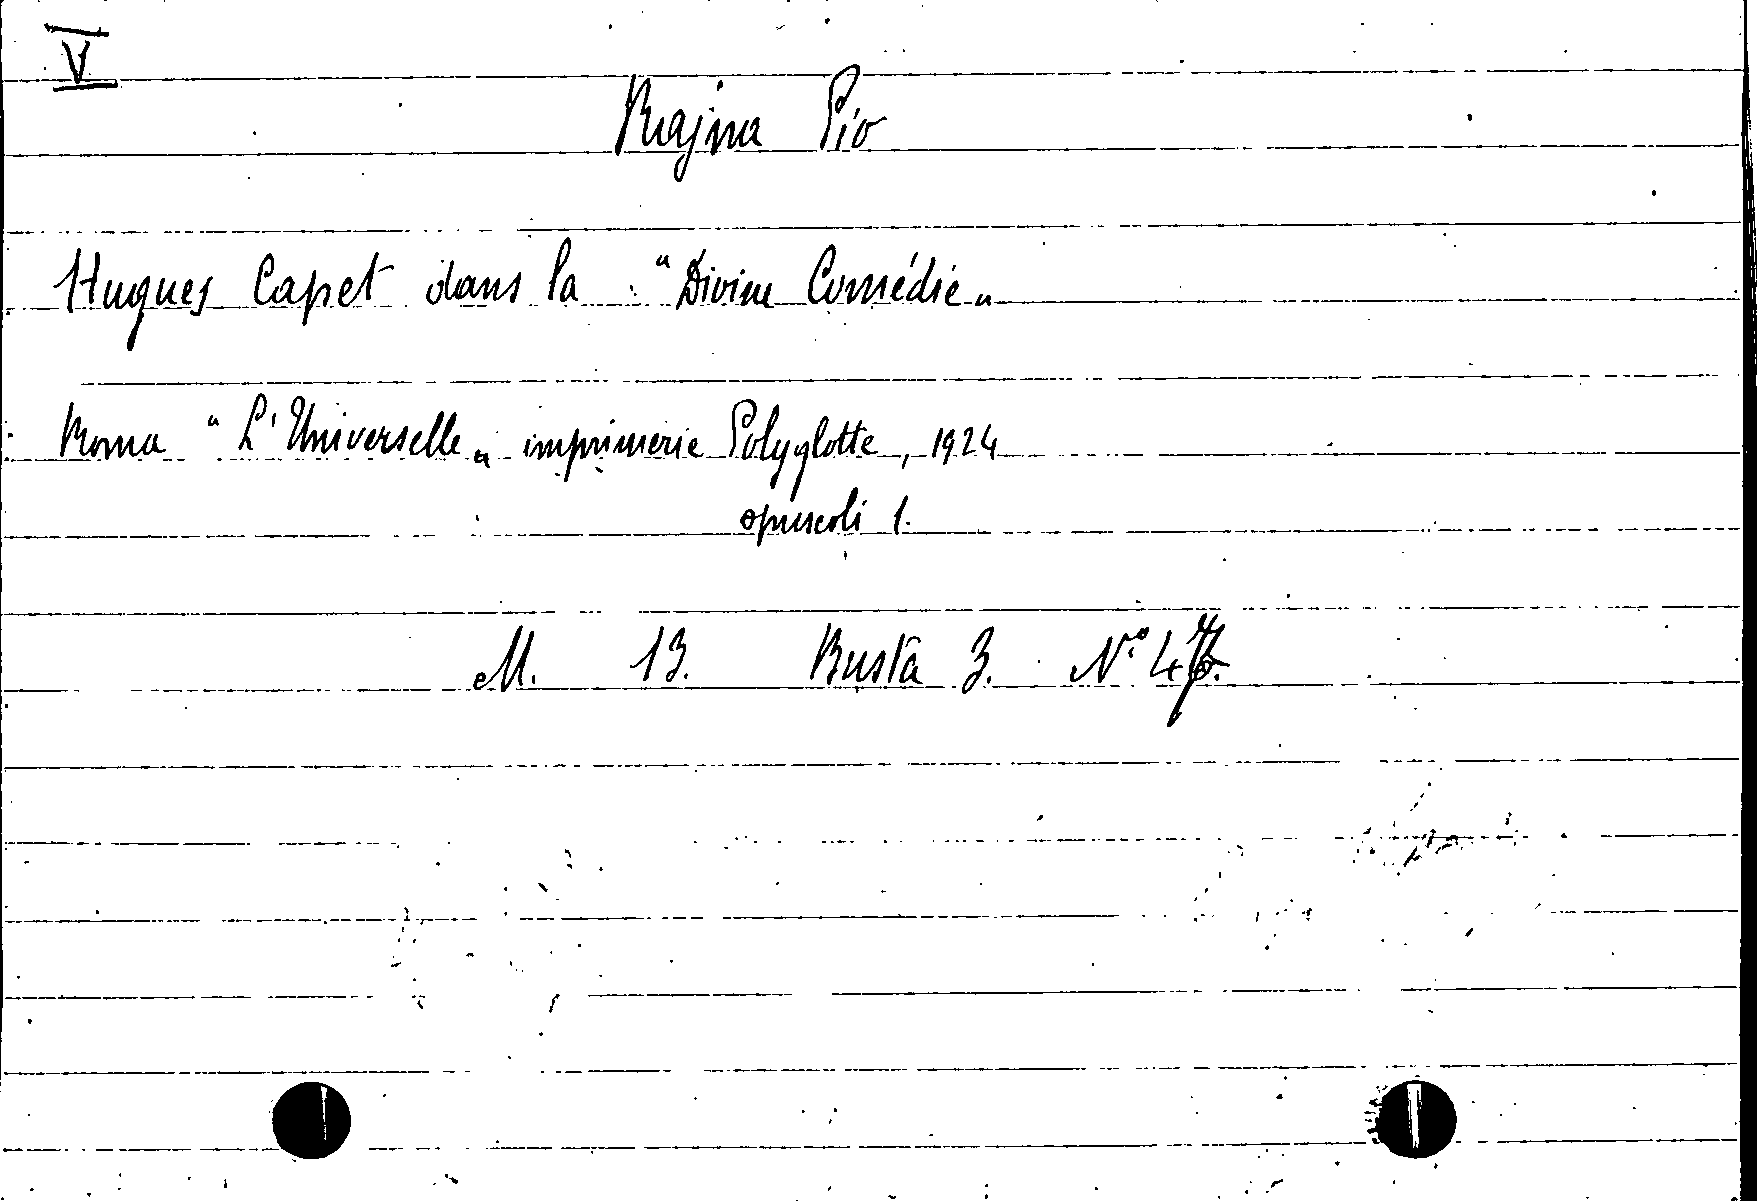 V
Rajna Pio
Hugues Capet dans la "Divine Comédie"
Roma "L'Universelle" imprimerie Polyglotte, 1924
opuscoli 1.
M. 13. Busta 3. N.º